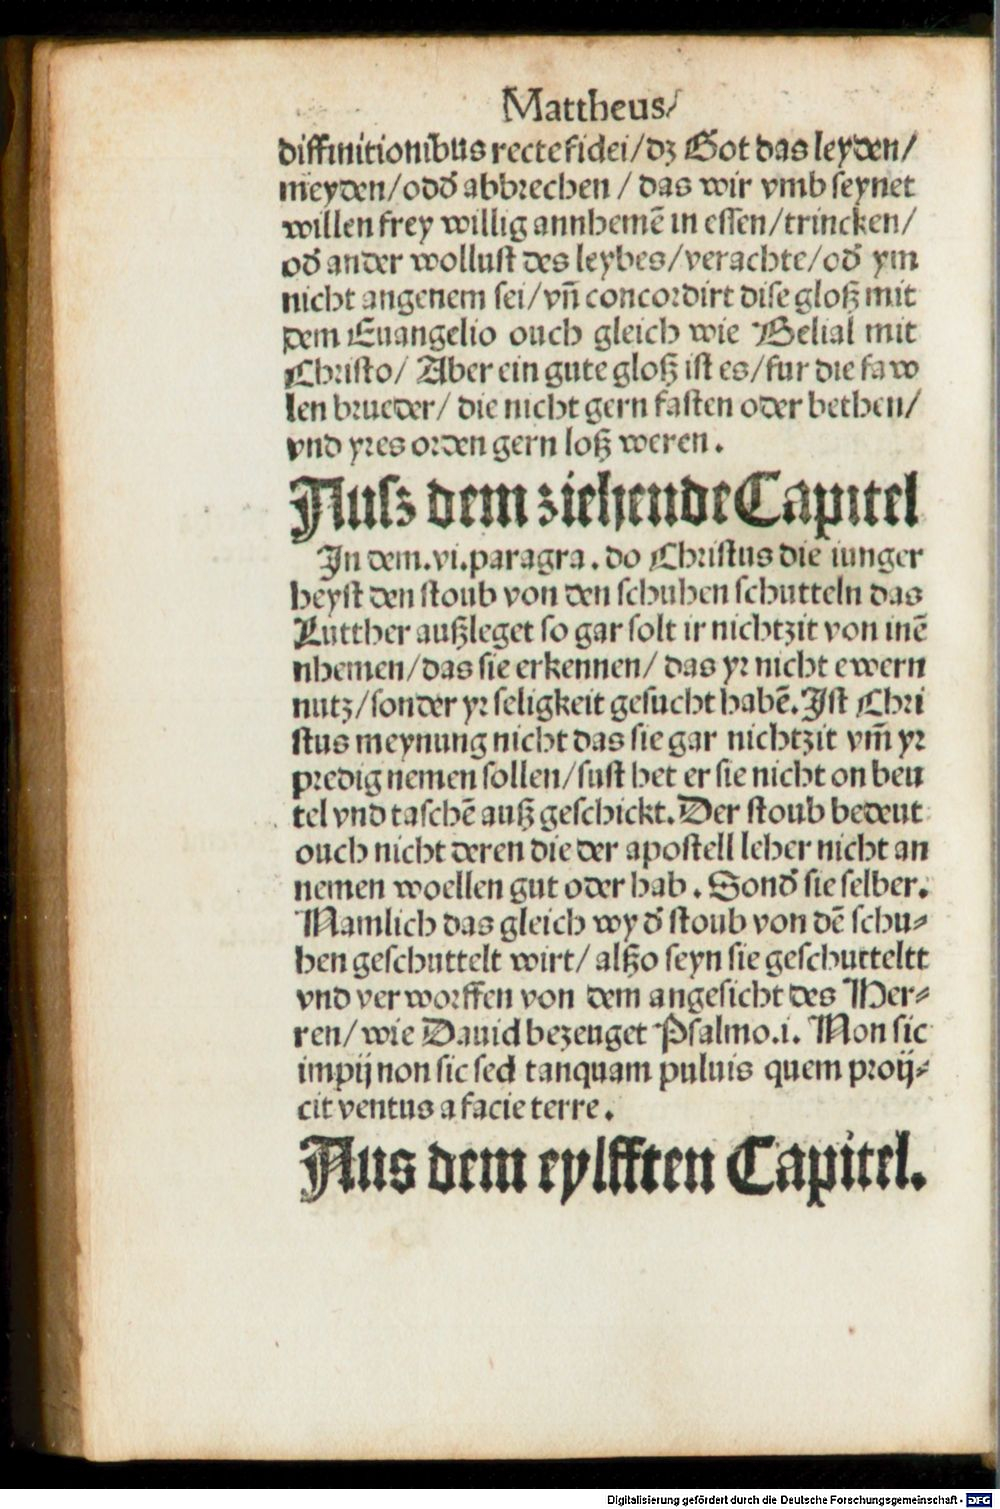 Mattheus/
diffinitionibus recte fidei/dz Got das leyden/
meyden/odd̕ abbrechen / das wir vmb seynet
willen frey willig annhemē in essen/trincken/
od̕ ander wollust des leybes/verachte/od̕ ym
nicht angenem sei/vn̄ concordirt dise gloß mit
dem Euangelio ouch gleich wie Belial mit
Christo/ Aber ein gute gloß ist es/fur die faw
len brueder/ die nicht gern fasten oder bethen/
vnd yres orden gern loß weren.
Ausz dem ziehende Capitel
In dem.vi.paragra.do Christus die iunger
heyst den stoub von den schuhen schutteln das
Lutther außleget so gar solt ir nichtzit von inē
nhemen/das sie erkennen/ das yr nicht ewern
nutz/sonder yr seligkeit gesucht habē.Ist Chri
stus meynung nicht das sie gar nichtzit vm̄ yr
predig nemen sollen/sust het er sie nicht on beu
tel vnd taschē auß geschickt.Der stoub bedeut
ouch nicht deren die der apostell leher nicht an
nemen woellen gut oder hab. Sond̕ sie selber.
Namlich das gleich wy d̕ stoub von dē schu-
hen geschuttelt wirt/ alßo seyn sie geschutteltt
vnd verworffen von dem angesicht des Her-
ren/ wie Dauid bezeuget Psalmo.i. Non sic
impij non sic sed tanquam puluis quem proij-
cit ventus a facie terre.
Aus dem eylfften Capitel.
Digitalisierung gefördert durch die Deutsche Forschungsgemeinschaft - DFG